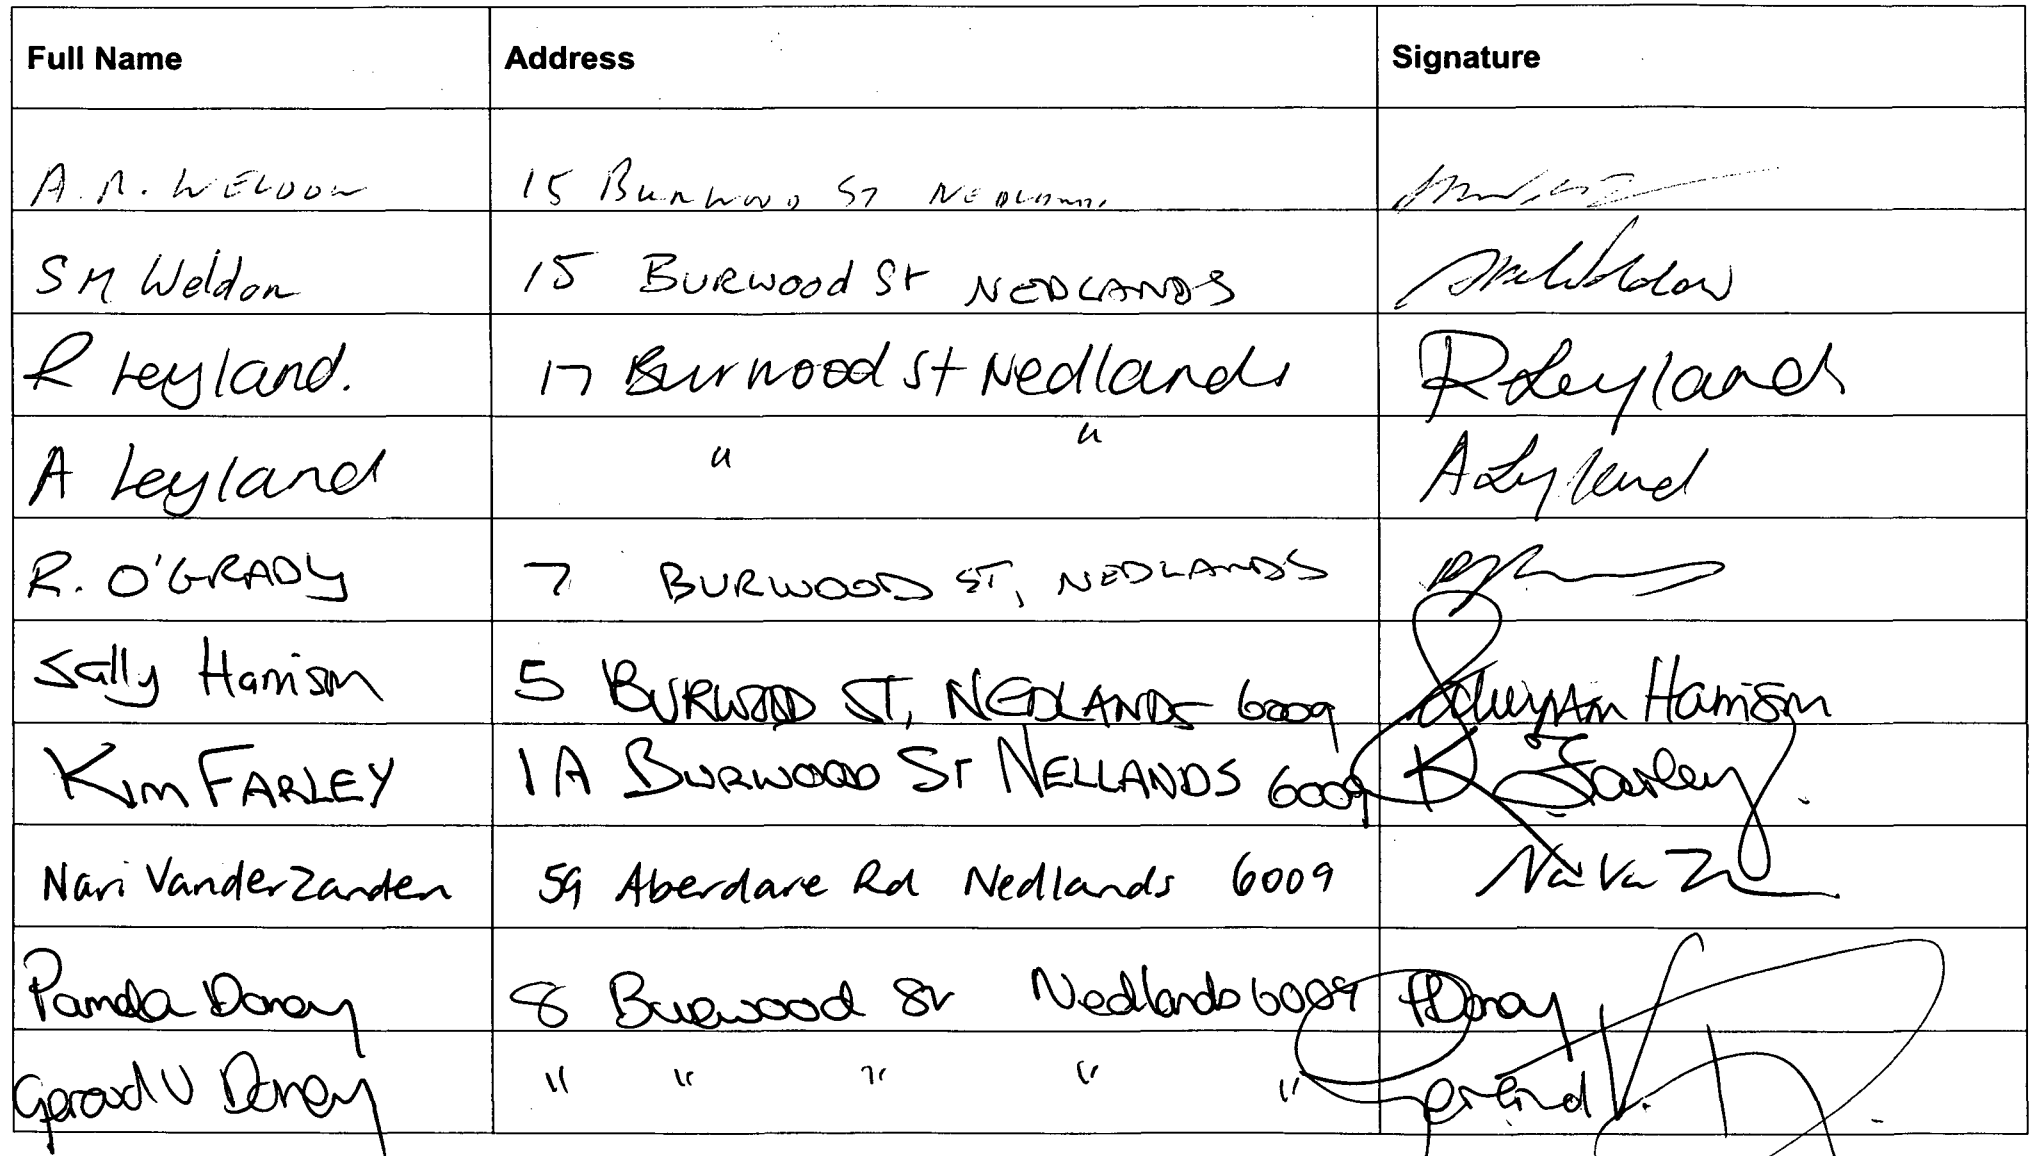 Full Name Address Signature
A. R. WELDON 15 Burwood St Nedlands
S M Weldon 15 BURWOOD St NEDLANDS SM Weldon
R Leyland. 17 Burwood St Nedlands R Leyland
A Leyland " " A Leyland
R. O'GRADY 7 BURWOOD ST, NEDLANDS
Sally Harrison 5 BURWOOD ST, NEDLANDS 6009 Harrison
KIM FARLEY 1A BURWOOD ST NELLANDS 6009 K Farley
Nari Vander Zanden 59 Aberdare Rd Nedlands 6009 Na Va Z
Pamela Doney 8 Burwood St Nedlands 6009 PDoney
Gerard V Doney " " " " " Gerard V.